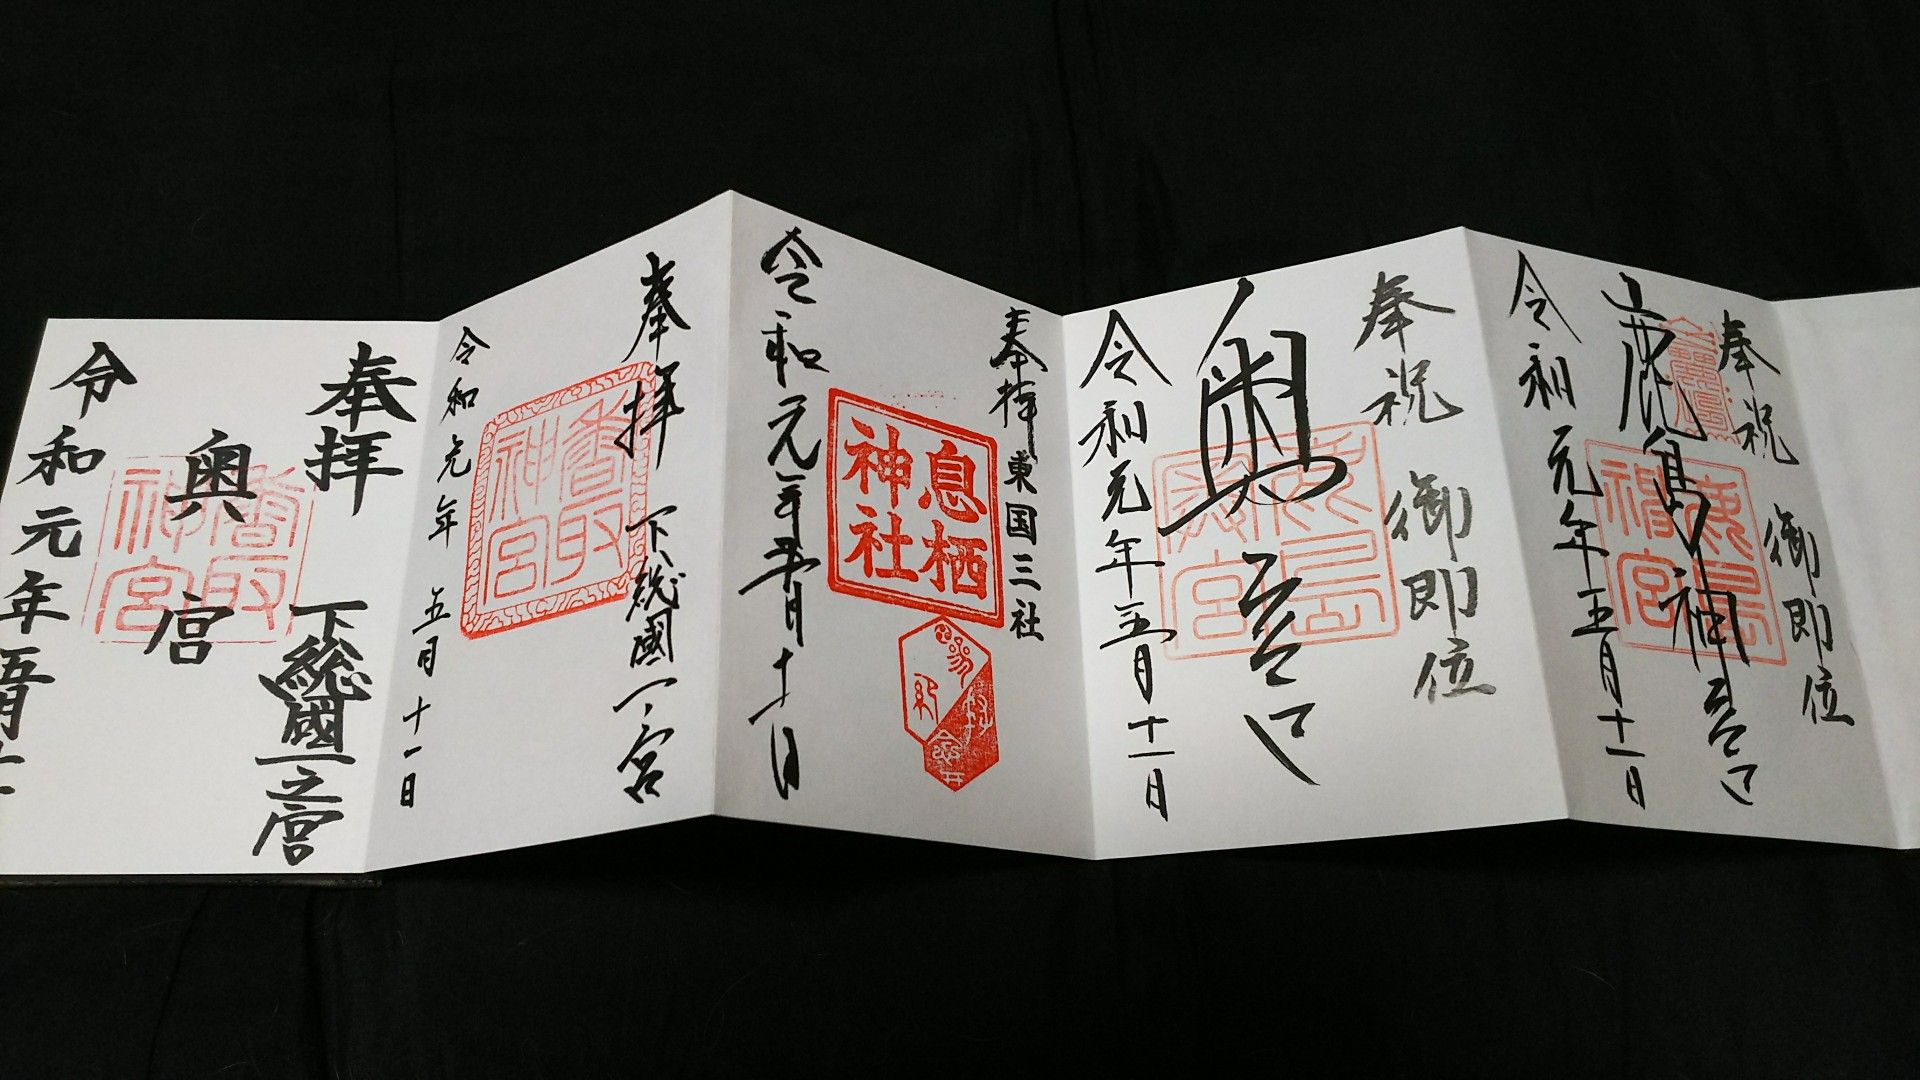 奉祝 御即位
鹿島神宮
鹿島
神宮
令和元年五月十一日
奉祝 御即位
奥宮
令和元年五月十一日
奉拝 東国三社
息栖
神社
令和元年五月十一日
奉拝 下総國一宮
香取
神宮
令和元年 五月十一日
奉拝 下総國一之宮
奥宮
香取
神宮
令和元年